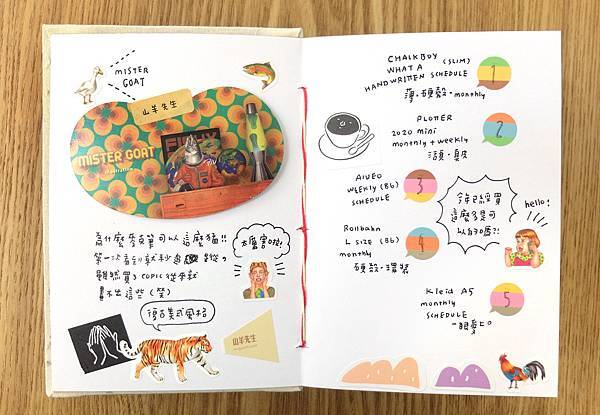 MISTER
GOAT
山羊先生
MISTER GOAT
為什麼麥克筆可以這麼猛!!
第一次看到就秒
雖然買了COPIC從來就
畫不出這些(笑)
太厲害啦!
復古美式風格
山羊先生
CHALKBOY (SLIM)
WHAT A
HANDWRITTEN SCHEDULE
薄.硬殼.monthly
1
PLOTTER
2020 mini
monthly + weekly
活頁.
2
AIUEO
WEEKLY (B6)
SCHEDULE
3
你已經買
這麼多是可
以自用嗎?!
hello!
Rollbahn
L SIZE (B6)
monthly
硬殼.環裝
4
Kleid A5
monthly
SCHEDULE
5